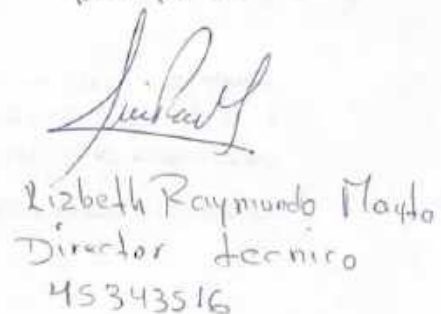 Lizbeth Raymundo Mayta
Director tecnico
45343516